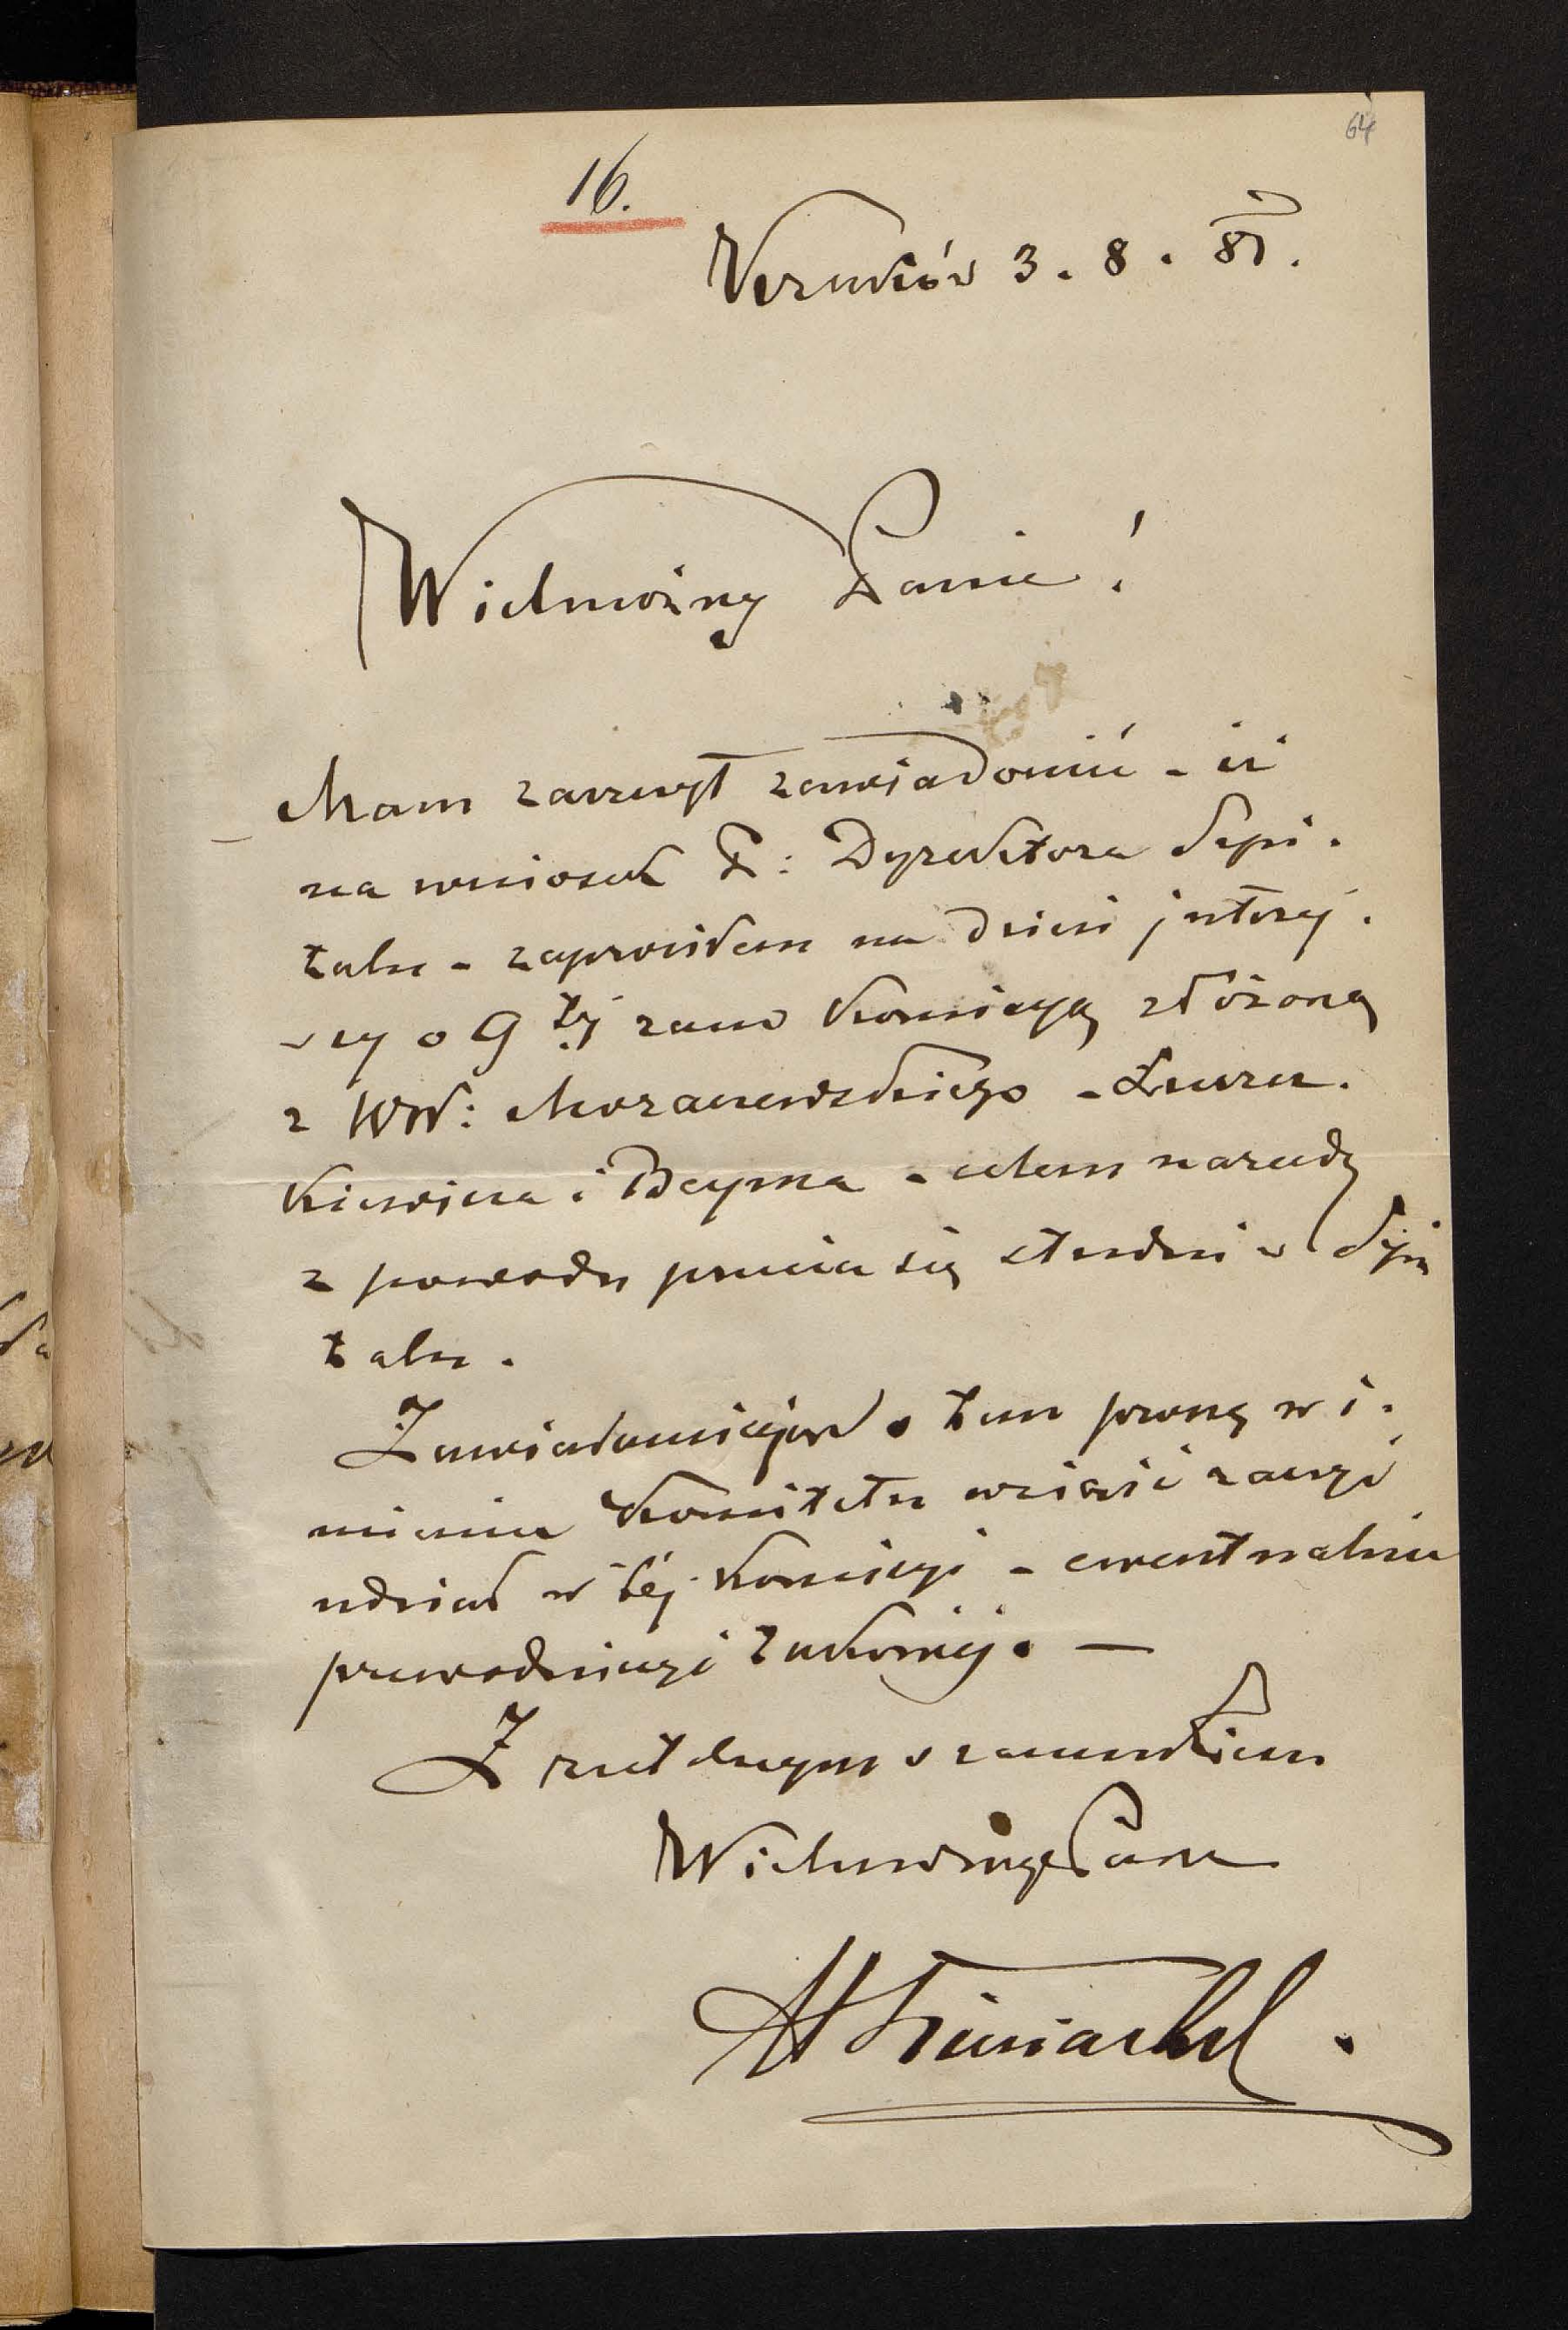 64
16.
Kraków 3. 8. 81.
Wielmożny Panie!
Mam zaszczyt zawiadomić - iż
na wniosek P: Dyrektora Szpi-
talu - zaprosiłem na dzień jutrzej-
szy o 9 téj rano komisyą złożoną
z WW: Moraczewskiego - Łuszcz-
kiewicza i Beyma - celem narady
z powodu psucia się studni w Szpi
talu.
Zawiadamiając o tem proszę w i-
mieniu Komitetu wziąść raczyć
udział w téj komisyi - ewentualnie
przewodniczyć takowej. —
Z rzetelnym szacunkiem
Wielmożnego Pana